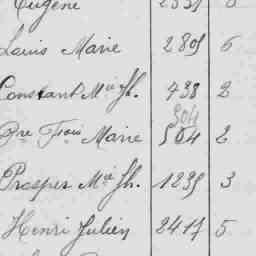 Eugène 2331 6
Louis Marie 2809 6
Constant Mie Jh. 438 2
504
Pre Frois Marie 504 2
Prosper Mie Jh. 1239 3
Henri Julien 2417 5